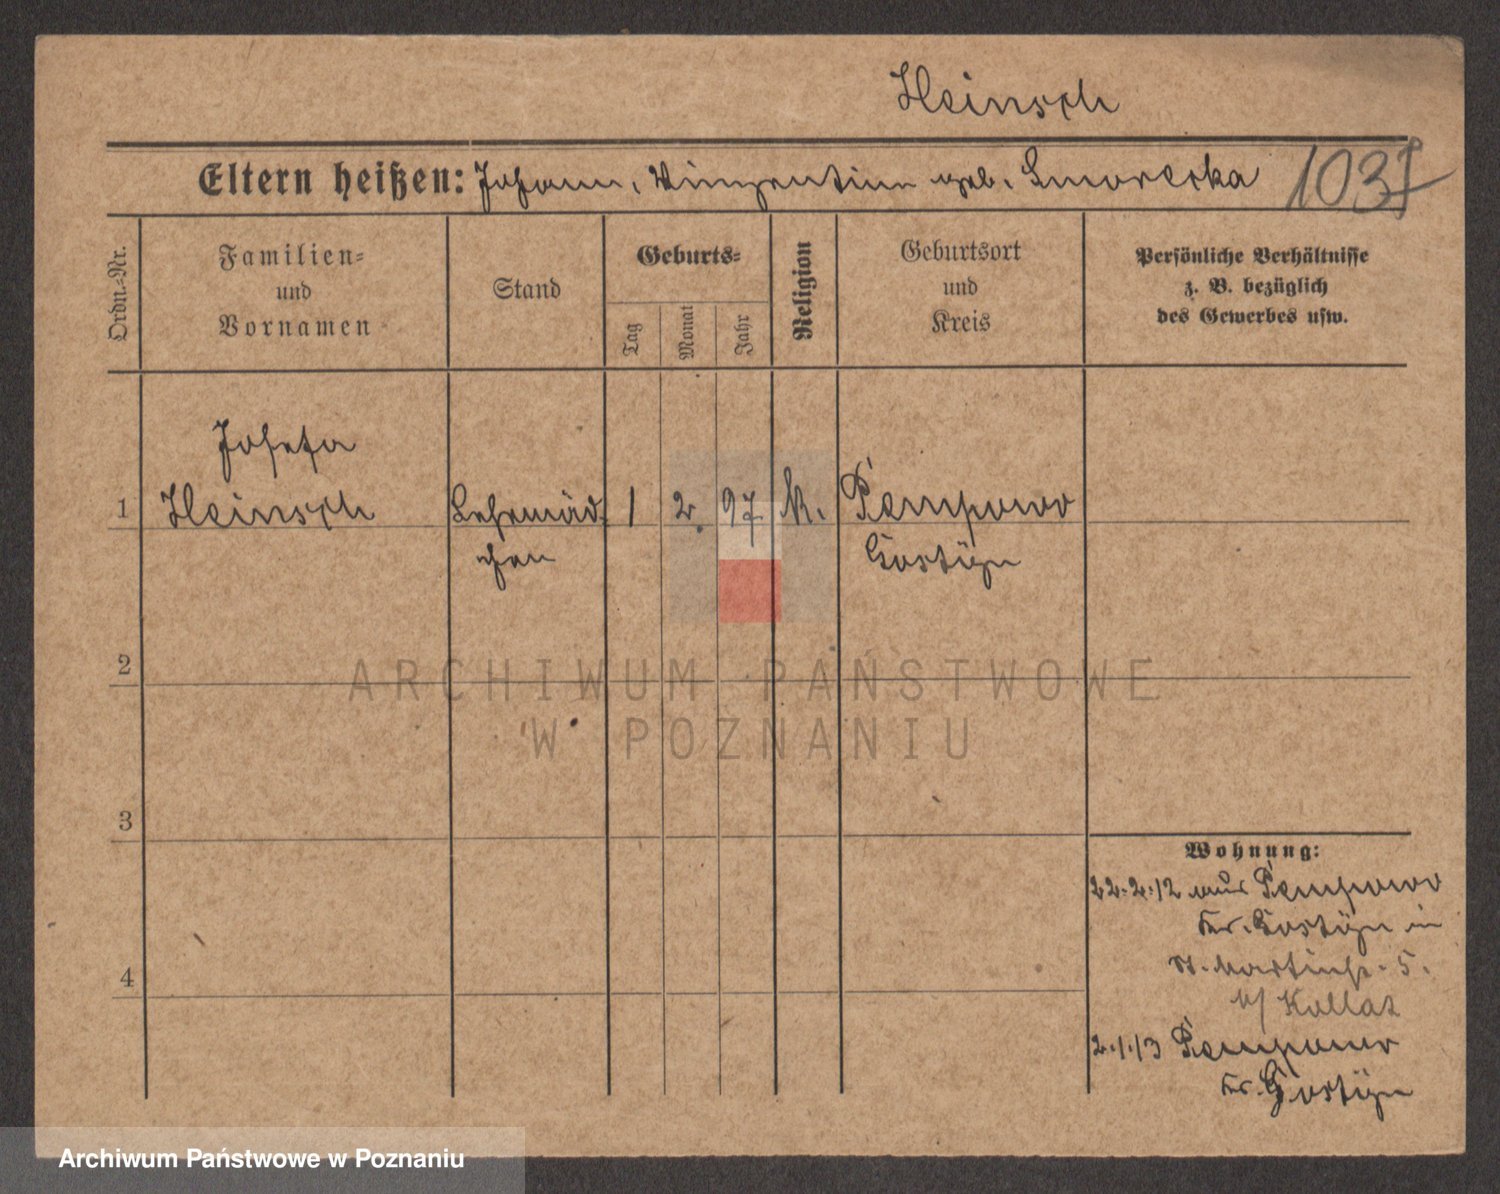 Heinsch
Eltern heißen: Johann, Vinzentine geb. Smorecka 1037
Ordn.-Nr.
Familien- und Vornamen
Stand
Geburts-
Tag
Monat
Jahr
Religion
Geburtsort und Kreis
Persönliche Verhältnisse z. B. bezüglich des Gewerbes usw.
Josefa
1 Heinsch Lehrmäd- 1 2. 97 k. Pempowo
chen Gostÿn
2
3
4
Wohnung:
22.2.12 aus Pempowo
Kr. Gostÿn in
St. Martinstr. 5.
b/ Kollat
2.1.13 Pempowo
Kr. Gostÿn
ARCHIWUM PAŃSTWOWE
W POZNANIU
Archiwum Państwowe w Poznaniu